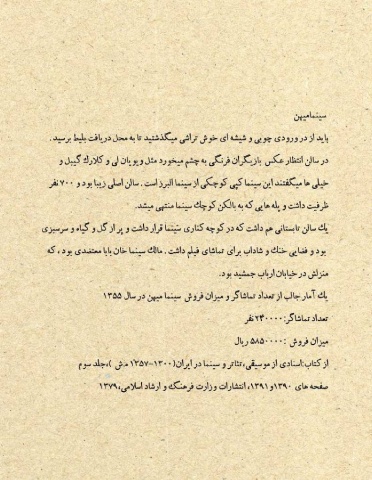 سینمامیهن
باید از در ورودی چوبی و شیشه ای خوش تراشی میگذشتید تا به محل دریافت بلیط برسید .
در سالن انتظار عکس بازیگران فرنگی به چشم میخورد مثل ویویان لی و کلارک گیبل و
خیلی ها میگفتند این سینما کپی کوچکی از سینما البرز است . سالن اصلی زیبا بود و ۷۰۰ نفر
ظرفیت داشت و پله هایی که به بالکن کوچک سینما منتهی میشد.
یک سالن تابستانی هم داشت که در کوچه کناری سینما قرار داشت و پر از گل و گیاه و سرسبزی
بود و فضایی خنک و شاداب برای تماشای فیلم داشت . مالک سینما خان بابا معتضدی بود ، که
منزلش در خیابان ارباب جمشید بود.
یک آمار جالب از تعداد تماشاگر و میزان فروش سینما میهن در سال ۱۳۵۵
تعداد تماشاگر:۲۴۰۰۰۰ نفر
میزان فروش :۵۸۵۰۰۰۰ ریال
از کتاب:اسنادی از موسیقی،تئاتر و سینما در ایران(۱۳۰۰-۱۳۵۷ ه.ش )،جلد سوم
صفحه های ۱۳۹۰و۱۳۹۱، انتشارات وزارت فرهنگ و ارشاد اسلامی،۱۳۷۹